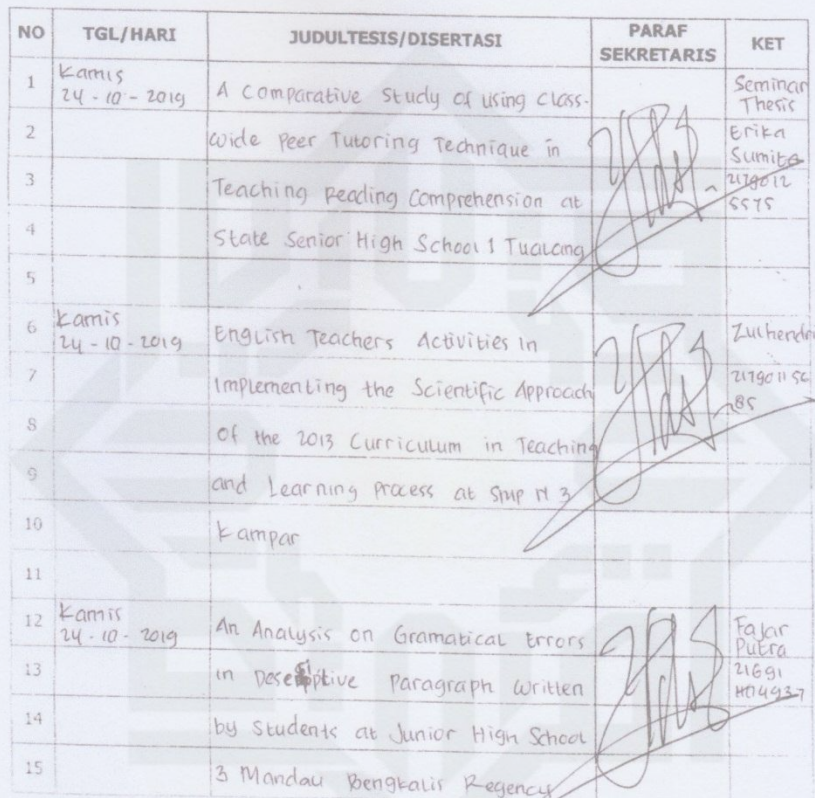 NO TGL/HARI JUDULTESIS/DISERTASI PARAF SEKRETARIS KET
1 Kamis 24-10-2019 A Comparative Study of using Class- Seminar Thesis
2 wide Peer Tutoring Technique in Erika Sumita
3 Teaching Reading Comprehension at 2179012
4 State Senior High School 1 Tualang 5575
5
6 Kamis 24-10-2019 English Teachers Activities in Zulhendri
7 Implementing the Scientific Approach 217901156
8 of the 2013 Curriculum in Teaching 85
9 and Learning Process at SMP N 3
10 Kampar
11
12 Kamis 24-10-2019 An Analysis on Gramatical Errors Fajar Putra
13 in Paragraph Written 21691
14 by Students at Junior High School
15 3 Mandau Bengkalis Regency